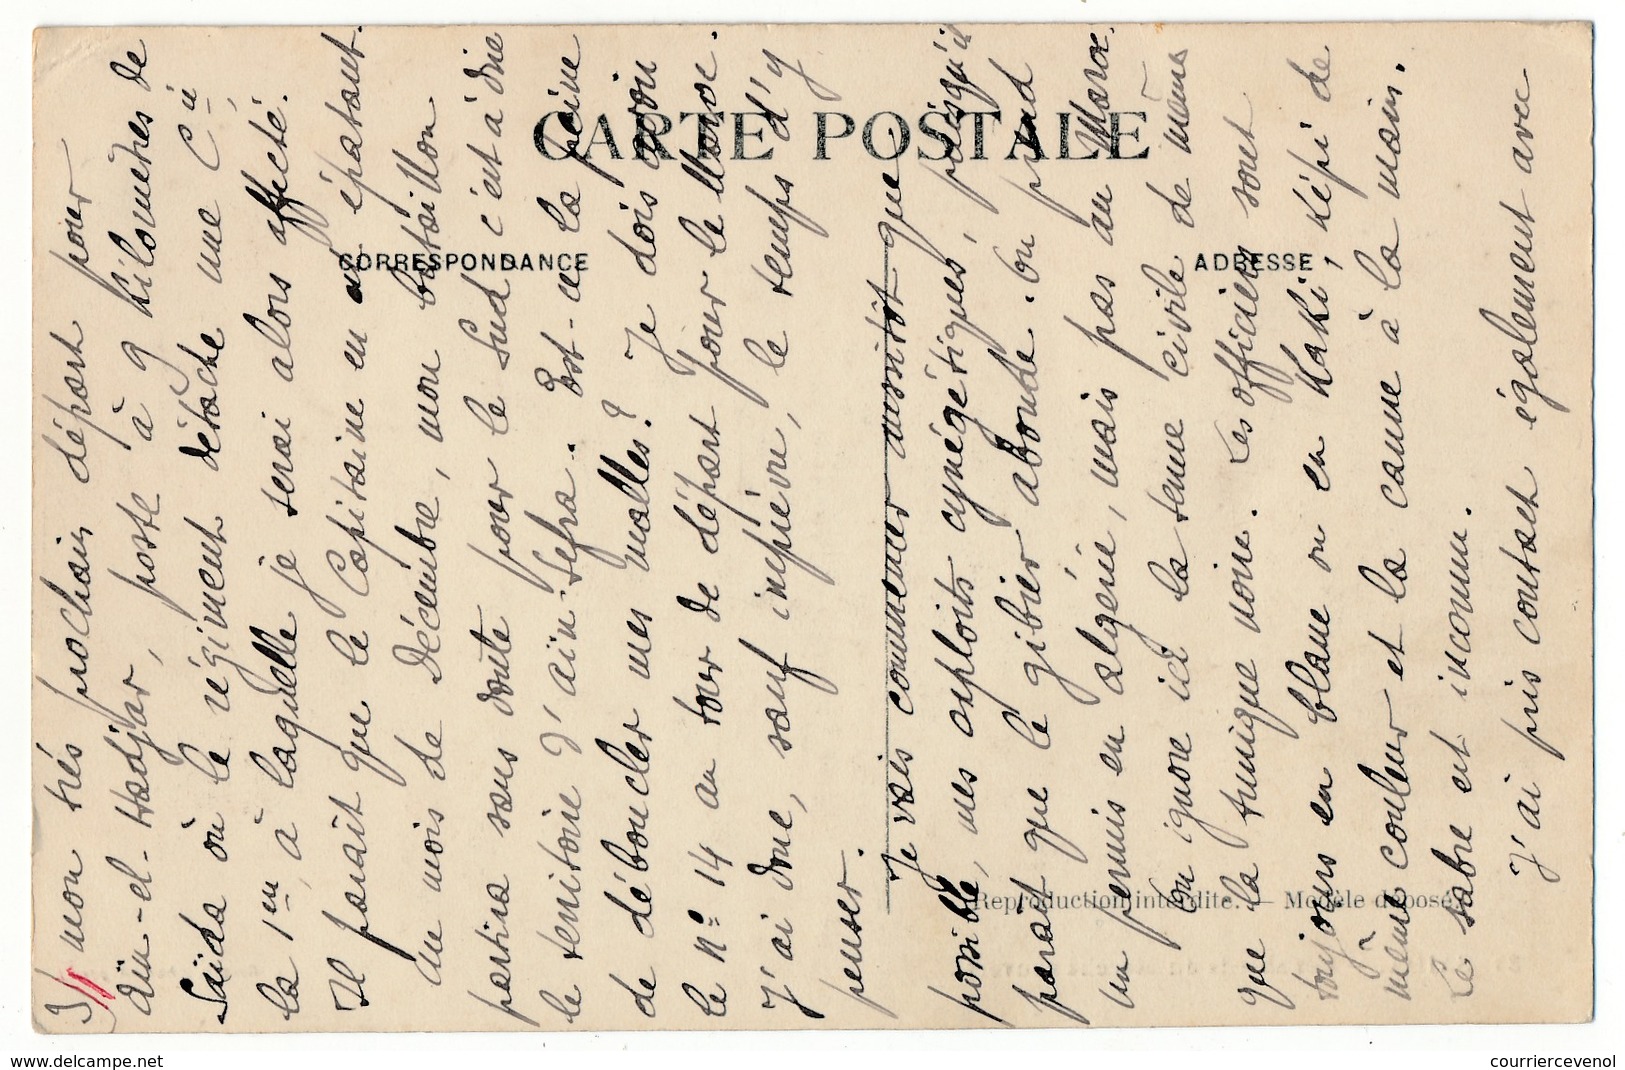 CARTE POSTALE
CORRESPONDANCE
ADRESSE
Reproduction interdite. — Modèle déposé.
mon très prochain départ pour
Aïn-el-Hadjar, poste à 9 kilomètres de
Saïda où le régiment détache une Cie,
la 1ère, à laquelle je serai alors affecté.
Il paraît que le Capitaine en est épatant.
Au mois de Décembre, mon bataillon
partira sans doute pour le Sud c'est à dire
le territoire d'Aïn-Sefra. Est-ce la peine
de déboucler mes malles? Je dois avoir
le n° 14 au tour de départ pour le Maroc.
J'ai donc, sauf imprévu, le temps d'y
penser.
Je vais commencer aussitôt que
possible, mes exploits cynégétiques, puisqu'il
paraît que le gibier abonde. On prend
un permis en Algérie, mais pas au Maroc.
On ignore ici la tenue civile de même
que la tunique noire. Les officiers sont
toujours en blanc ou en kaki, képi de
même couleur et la canne à la main.
Le sabre est inconnu.
J'ai pris contact également avec
courriercevenol